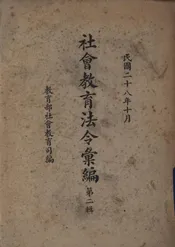 民國二十八年十月
社會教育法令彙編 第二輯
教育部社會教育司編